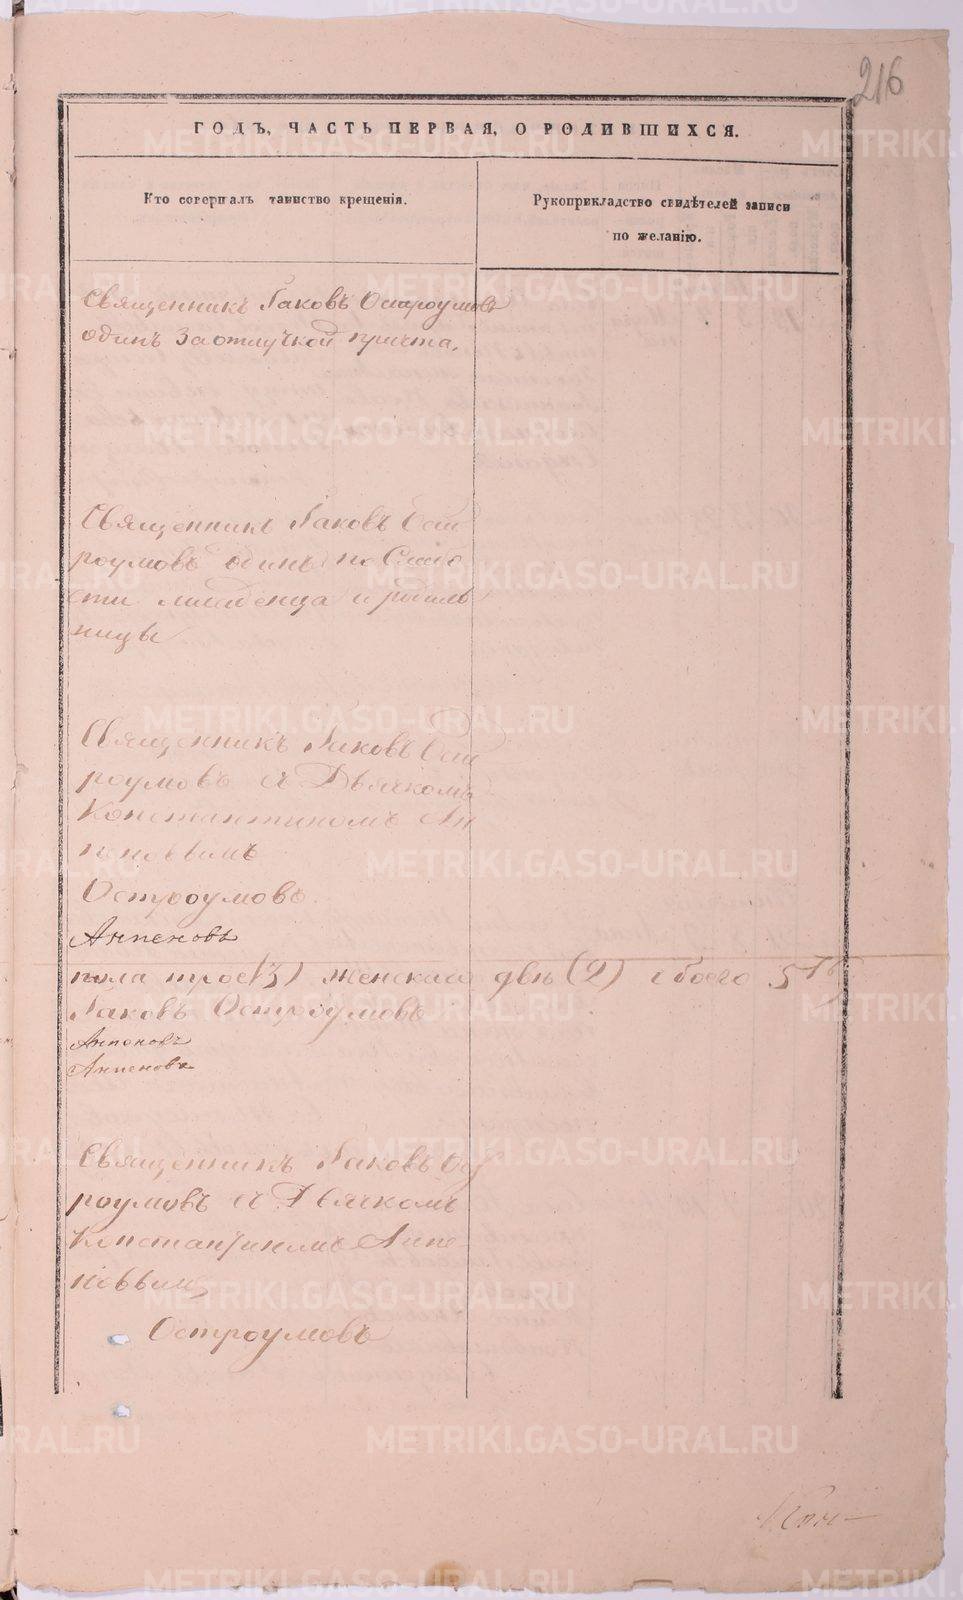 216
ГОДЪ, ЧАСТЬ ПЕРВАЯ, О РОДИВШИХСЯ.
Кто совершалъ таинство крещенія.
Рукоприкладство свидѣтелей записи
по желанію.
Священникъ Іаковъ Остроумовъ
одинъ За отлучкой причта.
Священникъ Іаковъ Ост
роумовъ одинъ по Слабо
сти младенца и родиль
ницы
Священникъ Іаковъ Ост
роумовъ съ Дьячкомъ
Константиномъ Ан
пеновымъ
Остроумовъ.
Анпеновъ
пола трое (3) женскаго двѣ (2) обоего 5ть
Іаковъ Остроумовъ
Анпеновъ
Анпеновъ
Священникъ Іаковъ Ост
роумовъ съ Дьячкомъ
Константиномъ Анпе
новымъ
Остроумовъ
METRIKI.GASO-URAL.RU